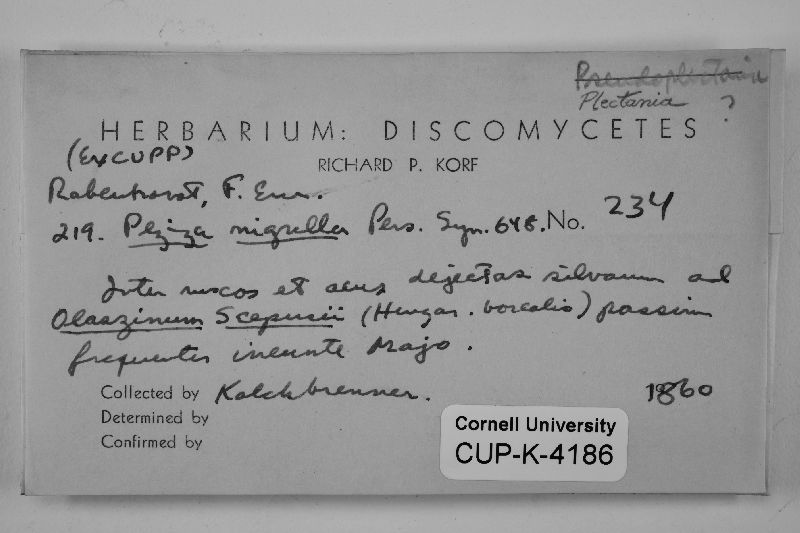 Pseudoplectania
Plectania ?
HERBARIUM: DISCOMYCETES
(ex CUPP)
RICHARD P. KORF
Rabenhorst, F. Eur.
219. Peziza nigrella Pers. Syn. 648. No. 234
Inter muscos et acus dejectas silvarum ad
Olaszinum Scepusii (Hungar. borealis) passim
frequenter ineunte Majo.
Collected by Kalchbrenner. 1860
Determined by
Confirmed by
Cornell University
CUP-K-4186